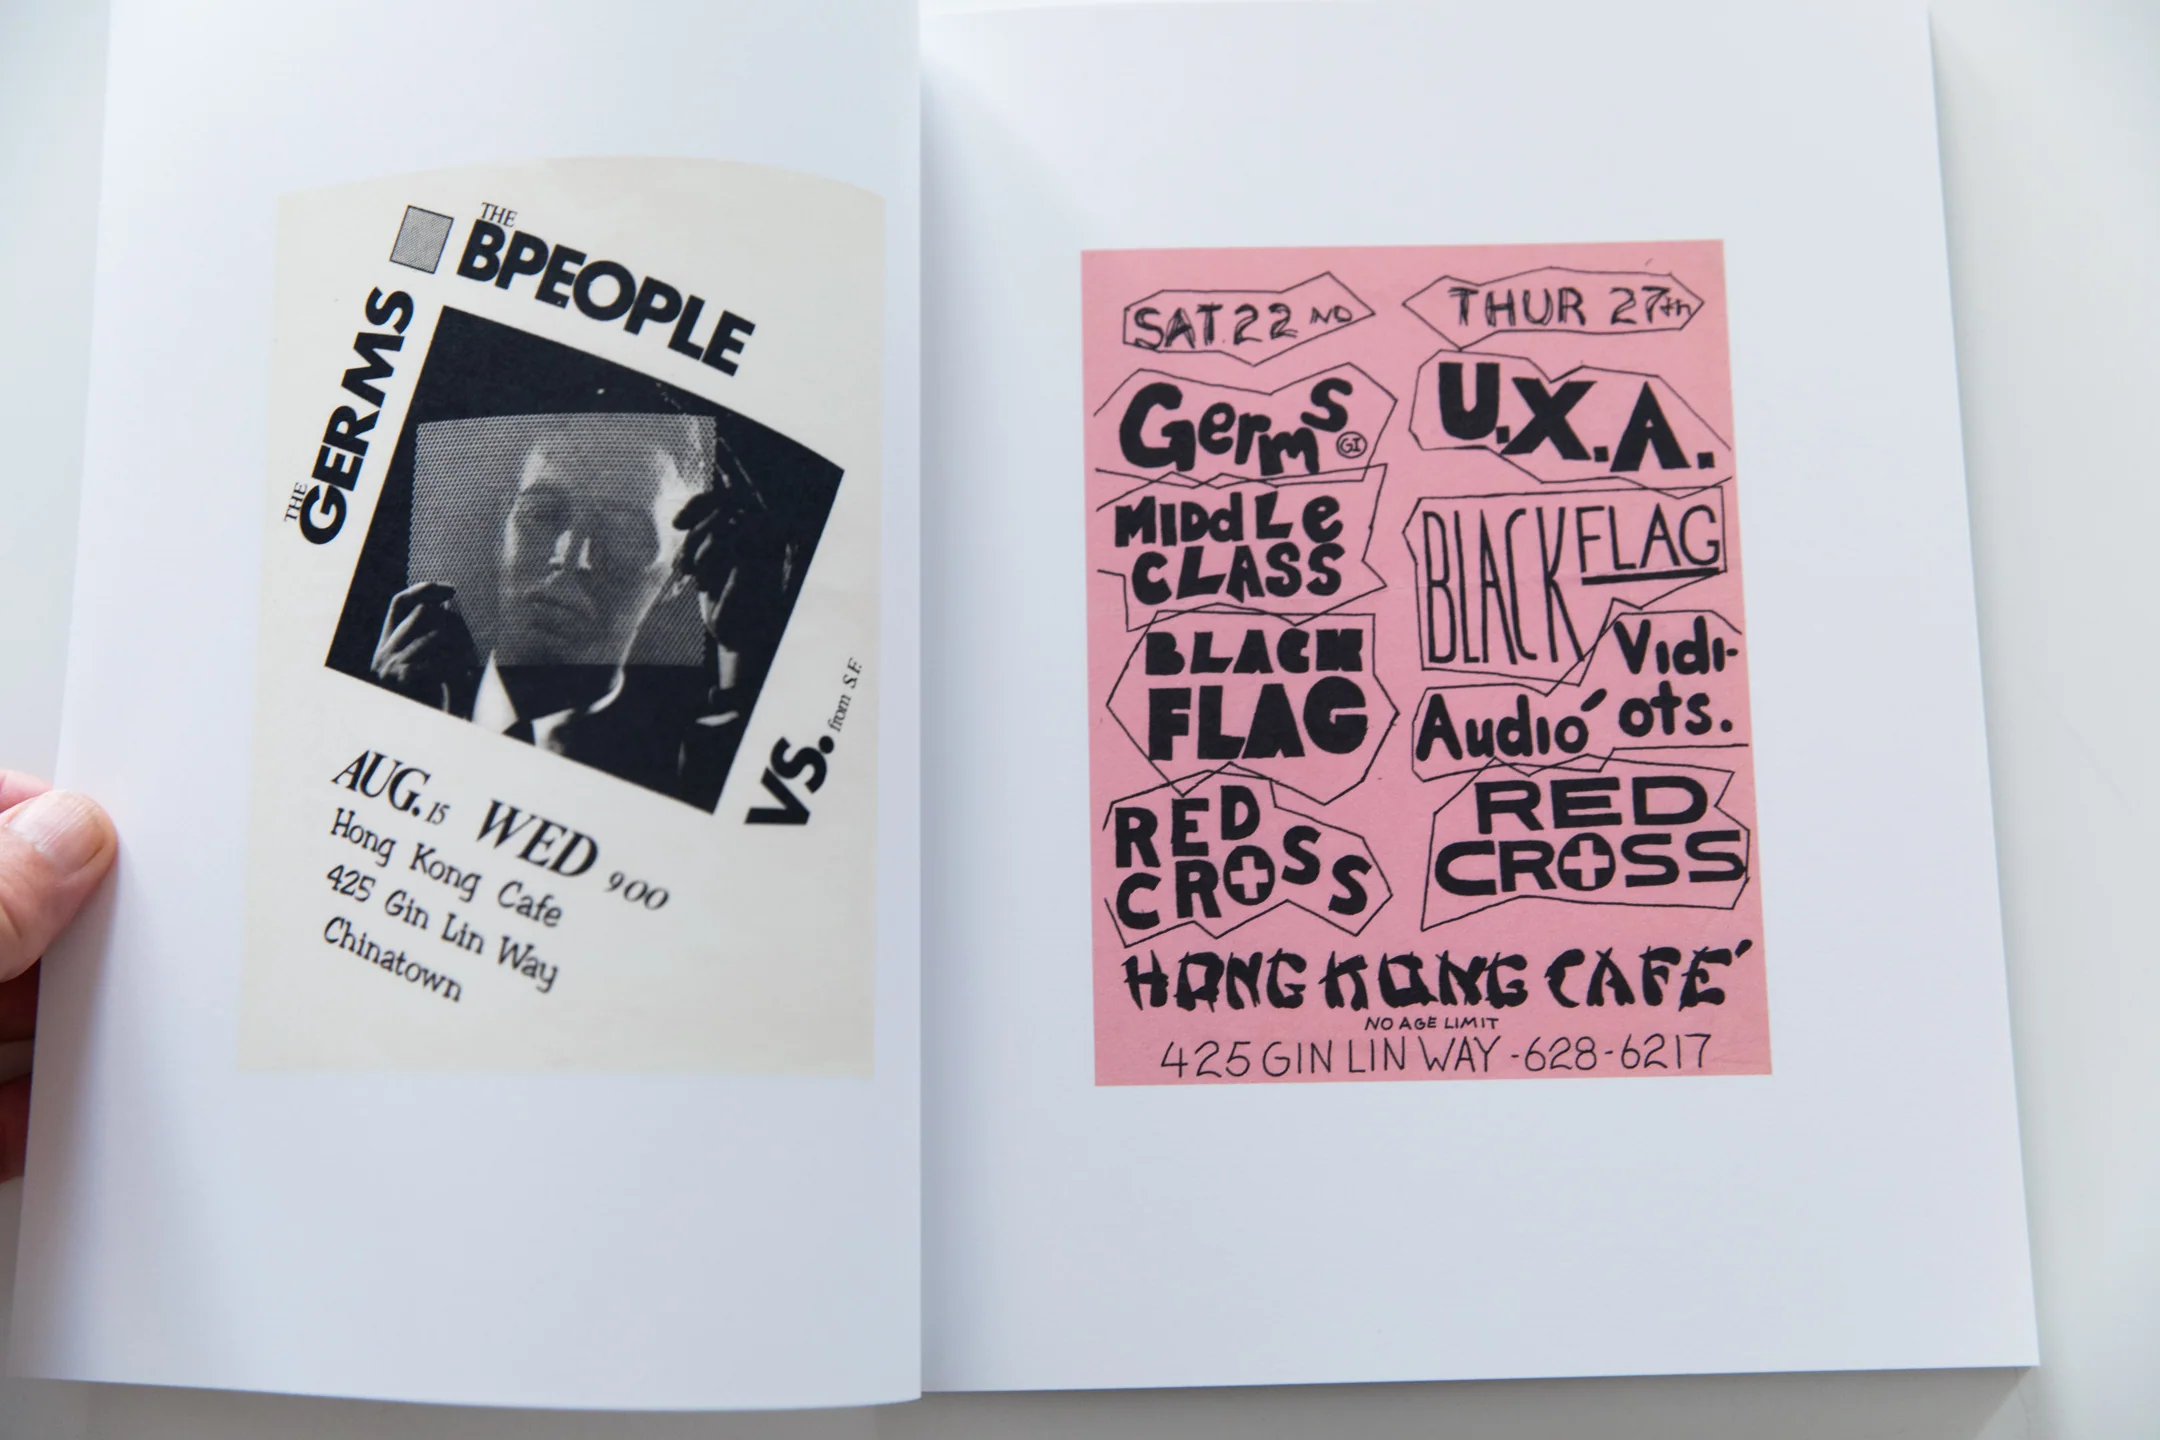 THE
BPEOPLE
THE
GERMS
VS. from S.F.
AUG. 15 WED 900
Hong Kong Cafe
425 Gin Lin Way
Chinatown
SAT. 22 ND
Germs GI
MIDdLe
CLASS
BLACK
FLAG
RED
CROSS
THUR 27th
U.X.A.
BLACK FLAG
Audio´ Vidi-
ots.
RED
CROSS
HONG KONG CAFE´
NO AGE LIMIT
425 GIN LIN WAY - 628-6217